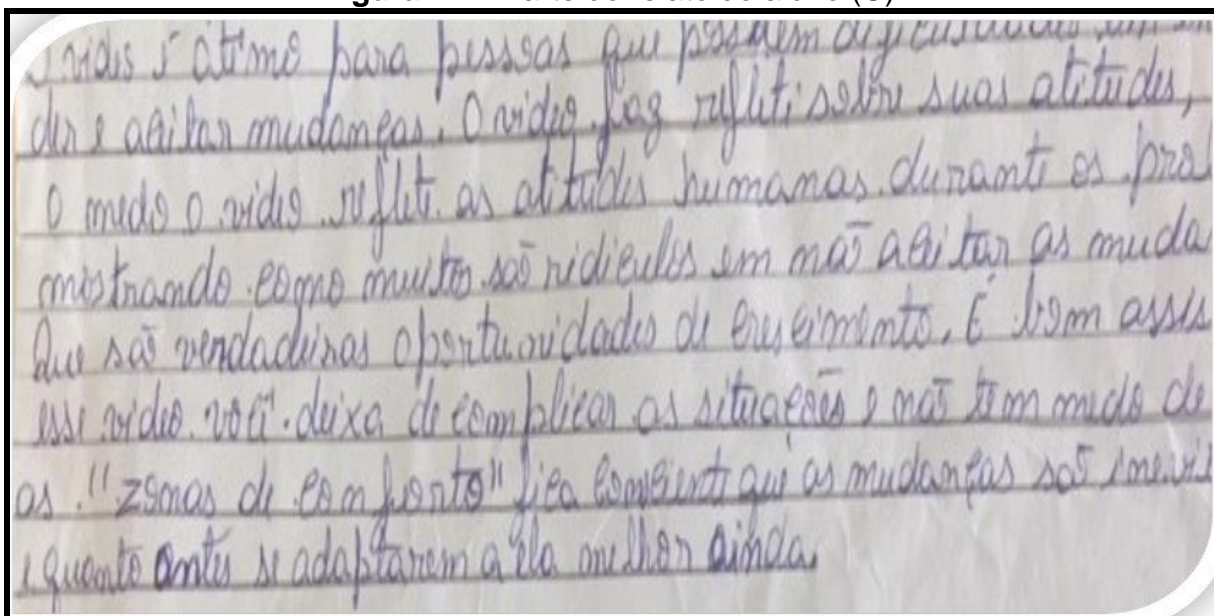 O vídeo é ótimo para pessoas que possuem dificuldades em
der e aceitar mudanças. O vídeo faz refleti sobre suas atitudes,
O medo o vídeo reflete as atitudes humanas durante os pro
mostrando como muitos são ridículos em não aceitar as muda
Que são verdadeiras oportunidades de crescimento. É bom assis
esse vídeo você deixa de complicar as situações e não tem medo de
as "zonas de conforto" fica consiente que as mudanças são inevit
e quanto antes se adaptarem a ela melhor ainda.